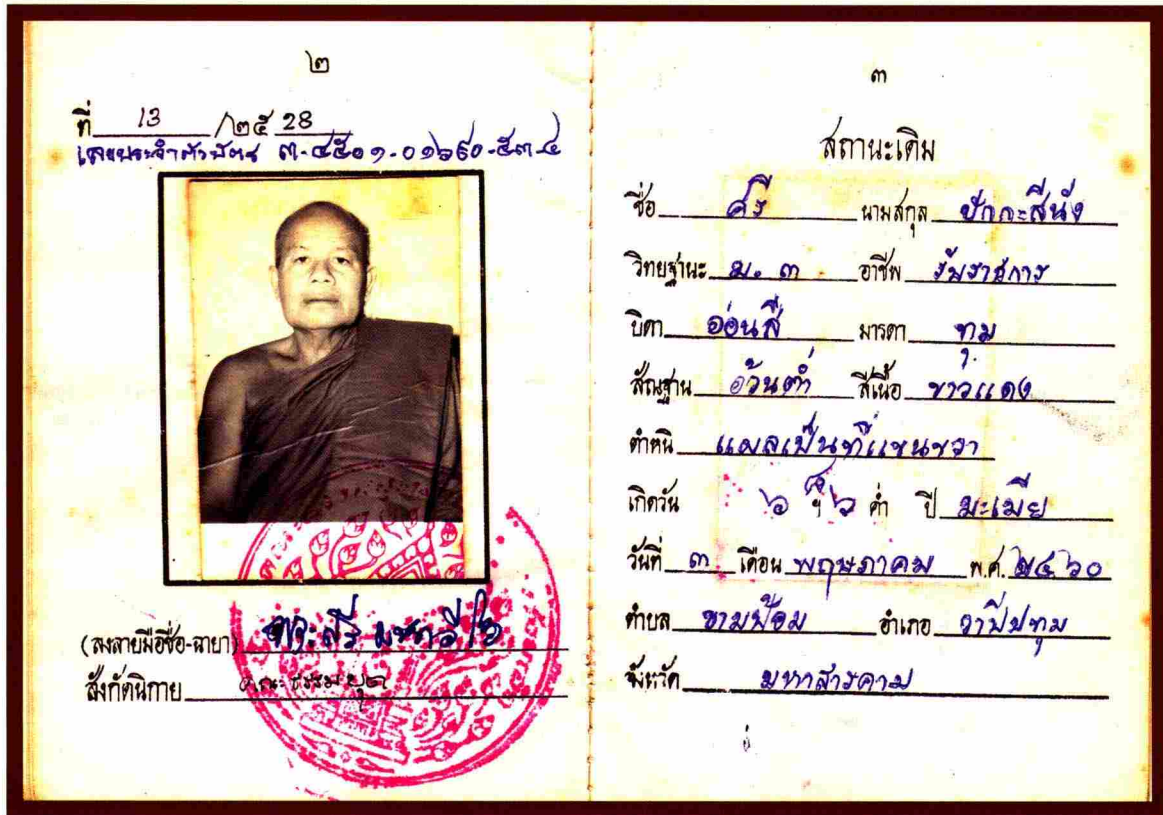 ๒
ที่ 13 /๒๕ 28
เลขประจำตัวบัตร ๓-๔๕๐๑-๐๑๖๙๐-๕๓-๔
(ลงลายมือชื่อ-ฉายา) พระศรี มหาวีโร
สังกัดนิกาย คณะธรรมยุต
๓
สถานะเดิม
ชื่อ ศรี นามสกุล ปักกะสีนัง
วิทยฐานะ ม. ๓ อาชีพ รับราชการ
บิดา อ่อนสี มารดา ทุม
สัณฐาน อ้วนต่ำ สีเนื้อ ขาวแดง
ตำหนิ แผลเป็นที่แขนขวา
เกิดวัน ๖ ฯ ๖ ค่ำ ปี มะเมีย
วันที่ ๓ เดือน พฤษภาคม พ.ศ. ๒๔๖๐
ตำบล ขามป้อม อำเภอ วาปีปทุม
จังหวัด มหาสารคาม